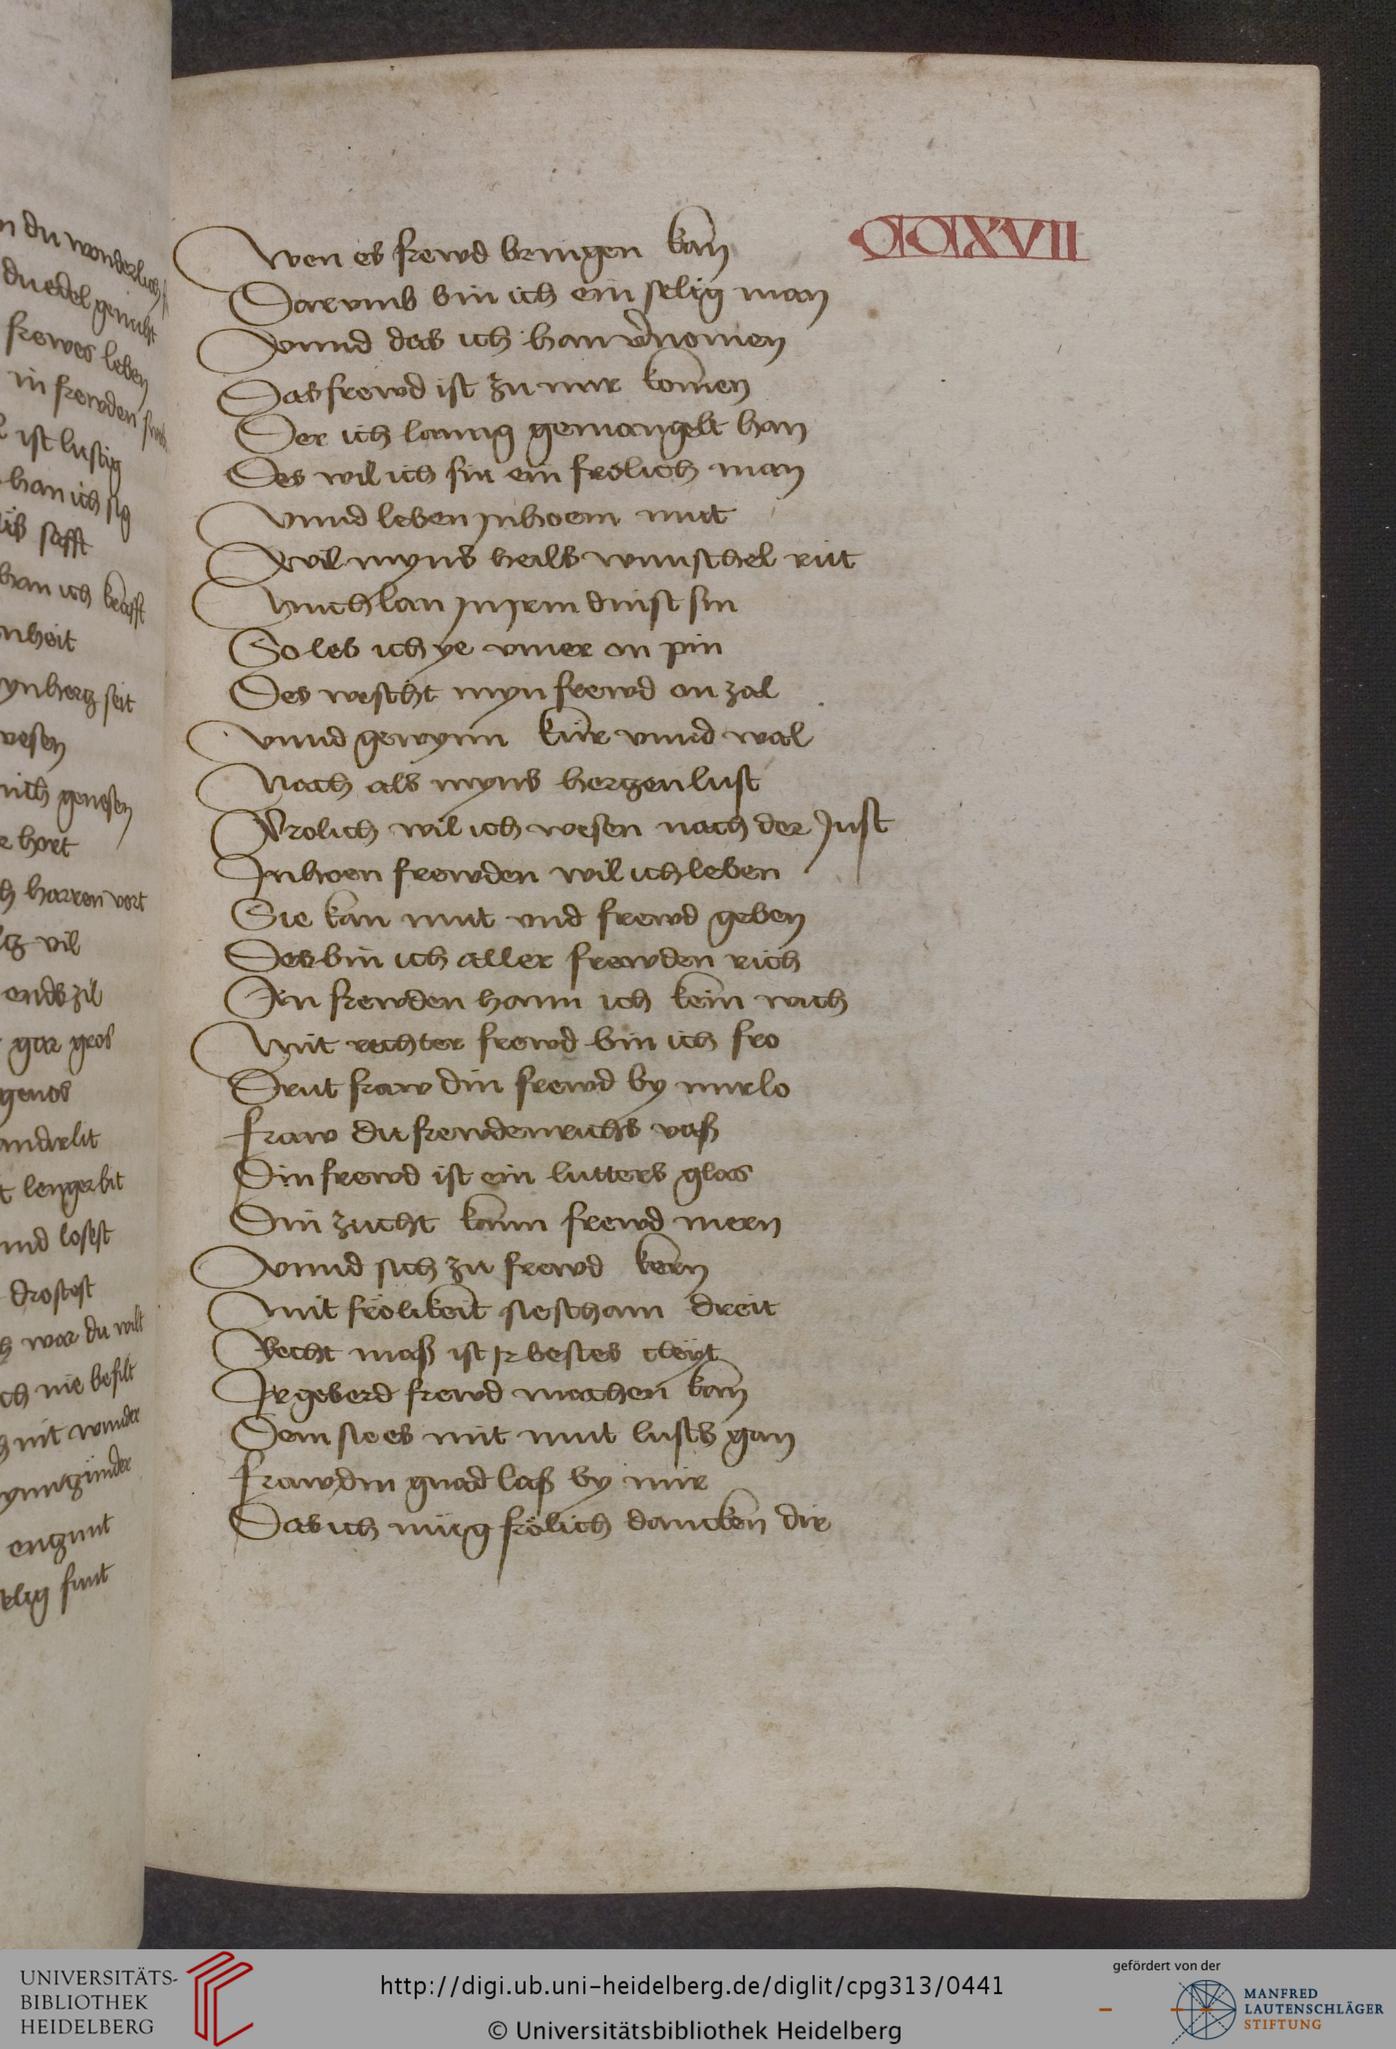 n du wonderlich
du edel genucht
frewes leben
in frewden
ist lustig
han ich sig
safft
han ich krafft
nheit
ynhertz seit
wesen
mich genesen
hort
h harren wort
vil
ends zil
gar gros
genos
andrelit
lenger bit
nnd losest
drostest
war du wilt
ch nie befilt
nit wunder
engunt
selig funt
CCCXVII
Wen es frewd bringen kan
Dar vmb bin ich ein selig man
Vnnd das ich han vernomen
Das frewd ist zu mir komen
Der ich lanng gemangelt han
Des wil ich sin ein frolich man
Vnnd leben jn hoem mut
Wil myns heils wunschel rut
Mich lan jn jrm dinst sin
So leb ich ye vmer on pin
Des wescht myn frewd on zal
Vnnd gewynn kur vnnd wal
Nach als myns hertzen lust
Frolich wil ich wesen nach der Just
In hoen frewden wil ich leben
Sie kan mut vnd frewd geben
Des bin ich aller frewden rich
An frewden hann ich kein wich
Mit rechter frewd bin ich fro
Drut fraw din frewd by mir lo
fraw du frewdenrichs vaß
Din frewd ist ein lutters glas
Din zucht kann frewd mern
Vnnd sich zu frewd kern
Mit frölikeit sie scham dreit
Recht maß ist jr bestes cleyt
Ir geberd frewd machen kan
Dem sie es mit mut lusts gan
fraw din gnad laß by mir
Das ich müg frölich dancken dir
UNIVERSITÄTS-
BIBLIOTHEK
HEIDELBERG
http://digi.ub.uni-heidelberg.de/diglit/cpg313/0441
© Universitätsbibliothek Heidelberg
gefördert von der
MANFRED
LAUTENSCHLÄGER
STIFTUNG